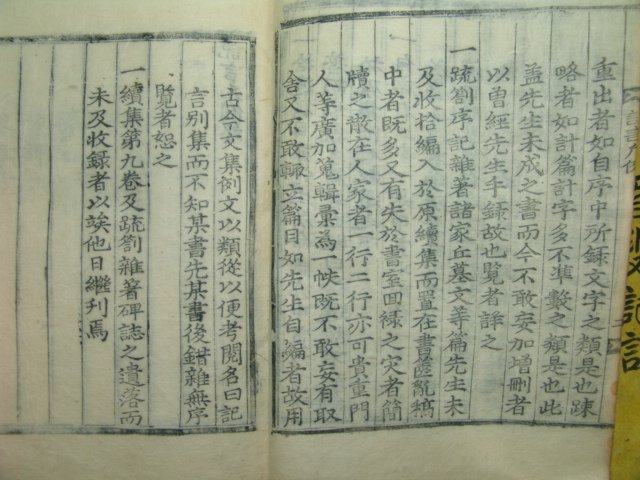 重出者如自序中所錄文字之類是也踈
略者如計篇計字多不準數之類是也此
盖先生未成之書而今不敢妄加增刪者
以曾經先生手錄故也覽者詳之
一疏劄序記雜著諸家丘墓文等篇先生未
及收拾編入於原續集而置在書篋亂稿
中者旣多又有失於書室回祿之灾者簡
牘之散在人家者一行二行亦可貴重門
人等廣加蒐輯彙為一帙旣不敢妄有取
舍又不敢輒立篇目如先生自編者故用
古今文集例文以類從以便考閱名曰記
言別集而不知某書先某書後錯雜無序
覽者恕之
一續集第九卷及疏劄雜著碑誌之遺落而
未及收錄者以竢他日繼刊焉